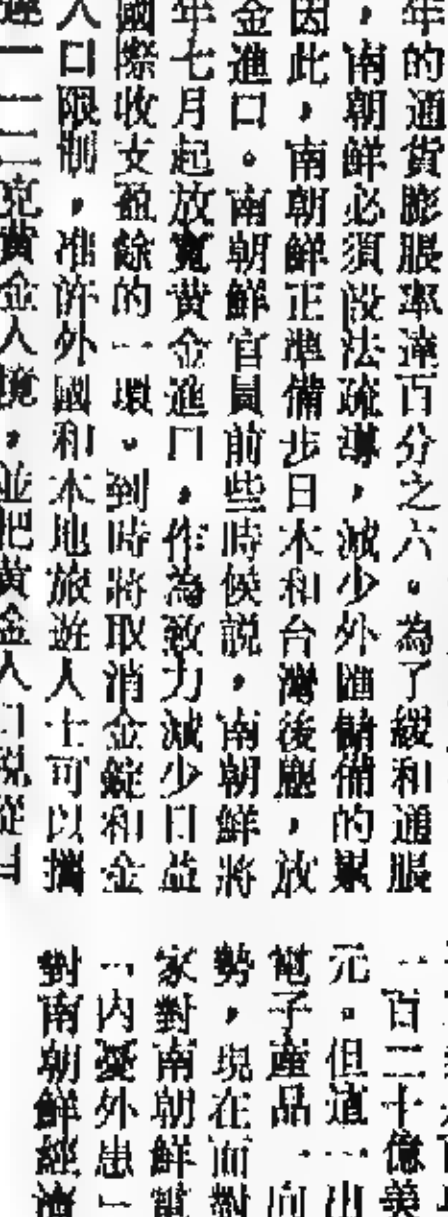 年的通貨膨脹率達百分之六。為了緩和通脹
，南朝鮮必須設法疏導，減少外匯儲備的累
因此，南朝鮮正準備步日本和台灣後塵，放
金進口。南朝鮮官員前些時候説，南朝鮮將
年七月起放寬黃金進口，作為致力減少日益
國際收支盈餘的一環。到時將取消金錠和金
入口限制，准許外國和本地旅遊人士可以攜
黃金入境，並把黃金入口税從
一百二十億美
元。但這一出
電子產品
勢，現在面對
家對南朝鮮
「內憂外患」
對南朝鮮經濟